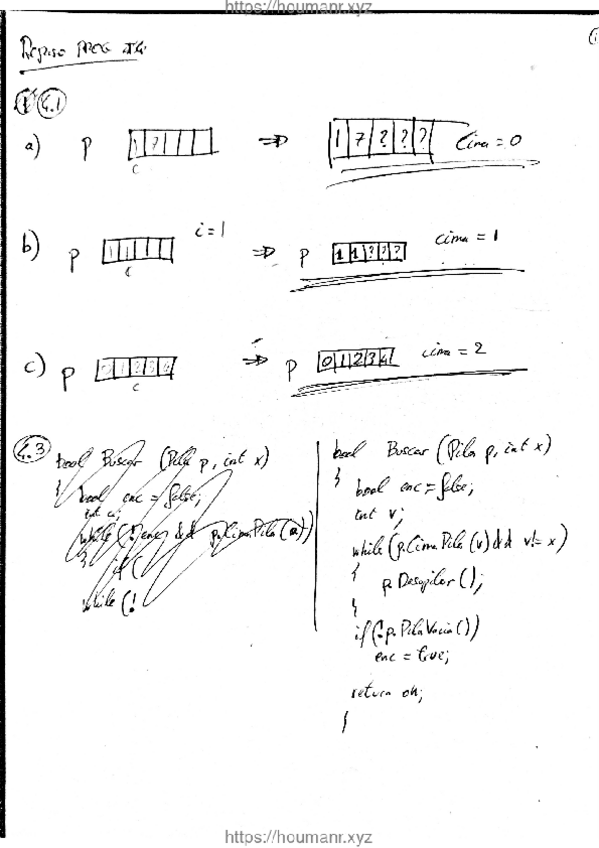 https://houmanr.xyz
Repaso PROG T4
4.1
a) p 1 7 => 1 7 ? ? ? Cima = 0
c
b) p 1 1 i = 1 => p 1 1 ? ? ? cima = 1
c
c) p 0 1 2 3 4 => p 0 1 2 3 4 cima = 2
c
4.3
bool Buscar (Pila p, int x)
{ bool enc = false;
int a;
while (!enc && p.CimaPila(a))
{ if (
while (!
bool Buscar (Pila p, int x)
{
bool enc = false;
int v;
while (p.CimaPila(v) && v != x)
{
p.Desapilar();
}
if (!p.PilaVacia())
enc = true;
return
}
https://houmanr.xyz